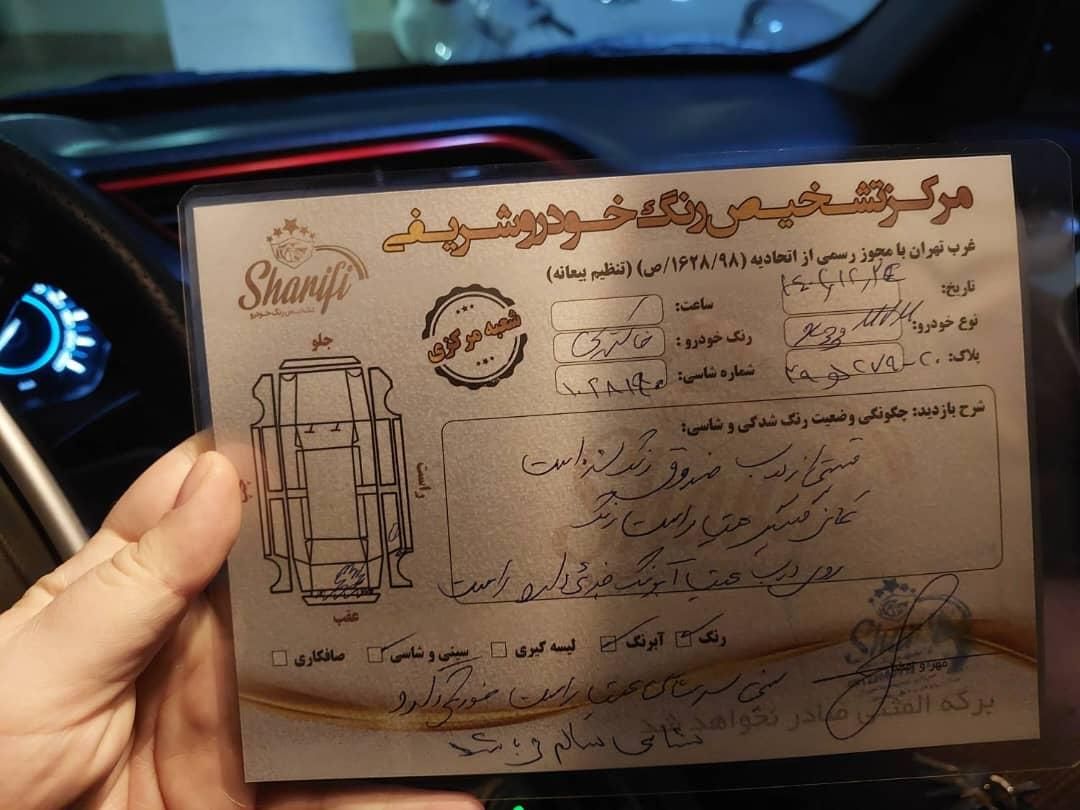 مرکز تشخیص رنگ خودرو شریفی
غرب تهران با مجوز رسمی از اتحادیه (۱۶۲۸/۹۸/ص) (تنظیم بیعانه)
Sharifi
تشخیص رنگ خودرو
شعبه مرکزی
تاریخ:
ساعت:
نوع خودرو:
رنگ خودرو: خاکستری
پلاک: ۲۰-۲۷۹
شماره شاسی:
جلو
راست
عقب
شرح بازدید: چگونگی وضعیت رنگ شدگی و شاسی:
قسمتی از درب صندوق رنگ شده است
گلگیر عقب راست رنگ
روی درب عقب آبرنگ جزئی دارد راست
رنگ
آبرنگ
لیسه گیری
سینی و شاسی
صافکاری
سینی سر شاسی عقب راست خوردگی دارد
شاسی سالم می باشد
مهر و امضا
برگه المثنی صادر نخواهد شد